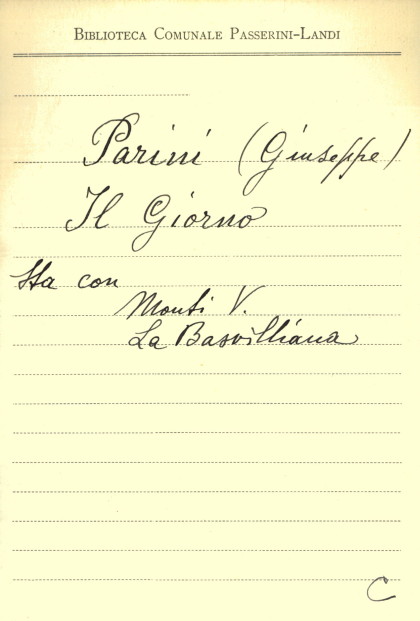 Biblioteca Comunale Passerini-Landi
Parini (Giuseppe)
Il Giorno
Sta con
Monti V.
La Basvilliana
C